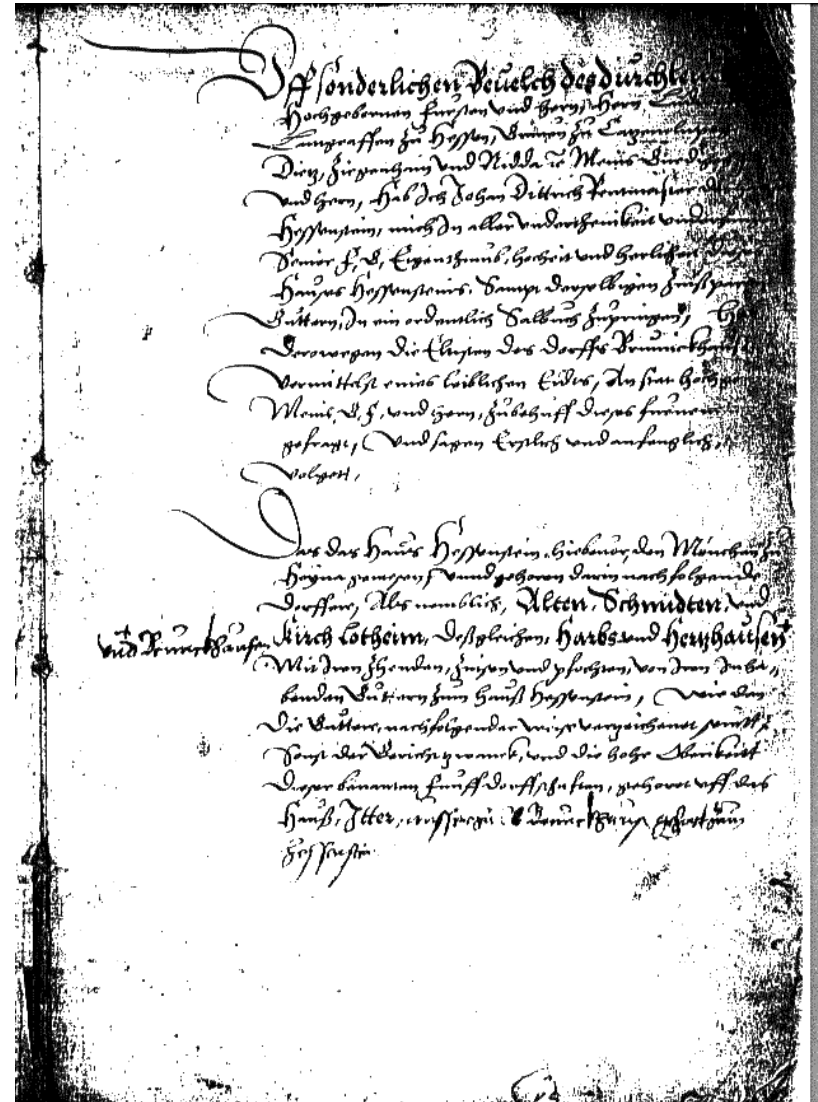 Uff sonderlichen Beuelch des durchleu
Hochgebornen Fursten vnd hern, Hern Lud
Landgraffen zu Hessen, Grauen zu Catzenelnpog
Dietz, Ziegenhain vnd Nidda
vnd hern, Hab Ich Johan Dittrich Rentmeister
Hessenstein, mich In aller vnderthenikeit
Seiner F. G. Eigenthumb, hocheit vnd herlicheit
Hauses Hessensteins, Sampt derselbigen
Guttern, In ein ordentlich Salbuch zupringen,
Derowegen die Eltisten des dorffs Brunickhausen
Vermittelst eines leiblichen Eides, An stat
Meins, G. F. vnd hern, zubehuff dieses
gefragt, Vnd sagen Erstlich vnd anfenglich,
volgett,
Das das Haus Hessenstein, hiebeuor, den Monchen zu
Heyna gewesen, Vnnd gehoren darin nachfolgende
dorffere, Als nemblich, Alten, Schmidten, vnd
vnd Brunickhausen
Kirch lotheim, Desgleichen, Harbs vnd Hertzhausen
Mit Iren Zhenden, Zinsen vnd pfechten, von Iren Inha,
benden Guttern zum hauß Hessenstein, Wie dan
Die Guttere, nachfolgender weise verzeichenet
Sonst der Gerichtzwanck, vnd die hohe Oberikeitt
Dieser benanten funff dorffschafften, gehoret vff das
Hauß, Itter, Brunickhausen gehort zum
Hessenstein